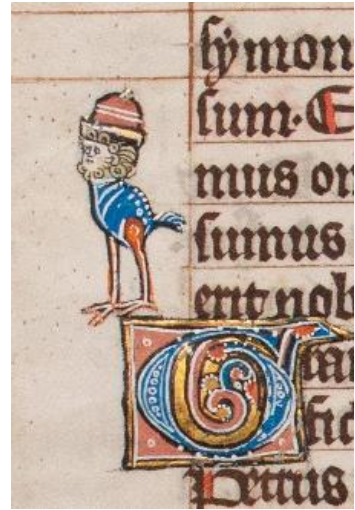 ſymon
ſum· E
mus on
ſumus
erit nob
Petrus